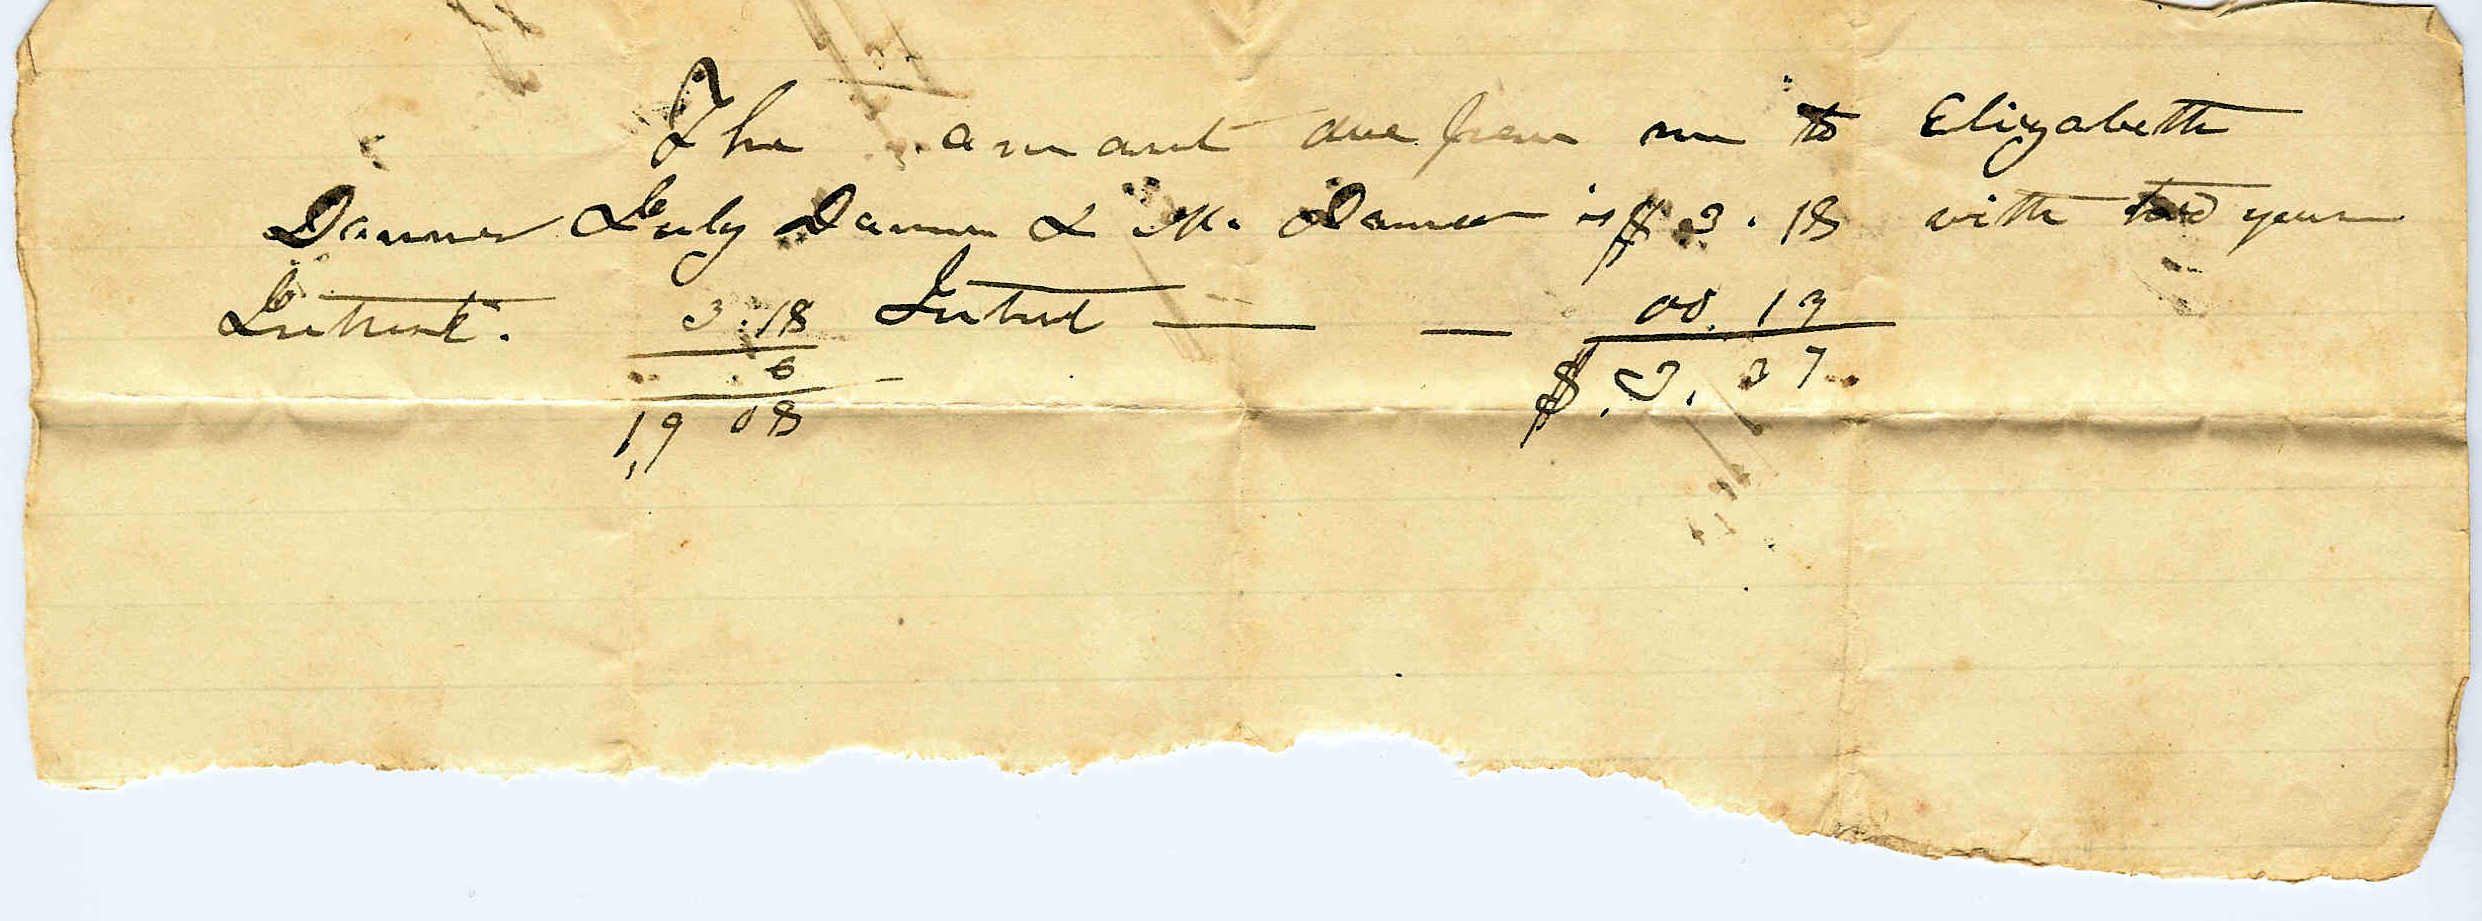 The amount due from me to Elizabeth
Danner July Danner & M. Danner is $3.18 with two years
Intrust. 3.18 Intrust — — 00.19
6 $.3.37
19 08